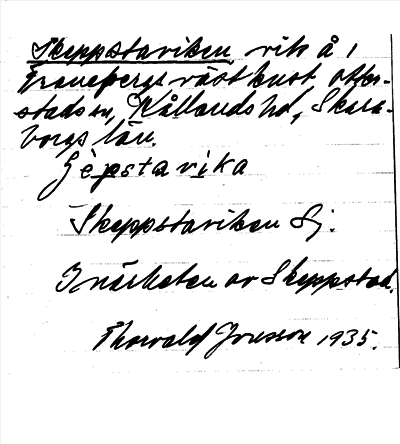 Skeppstaviken, vik å i
Granebergs västkust, Otter-
stads sn, Kållands hd, Skara-
borgs län.
Sèpstavika
Skeppstaviken Sj.
I närheten av Skeppstad.
Thorvald Jonsson 1935.